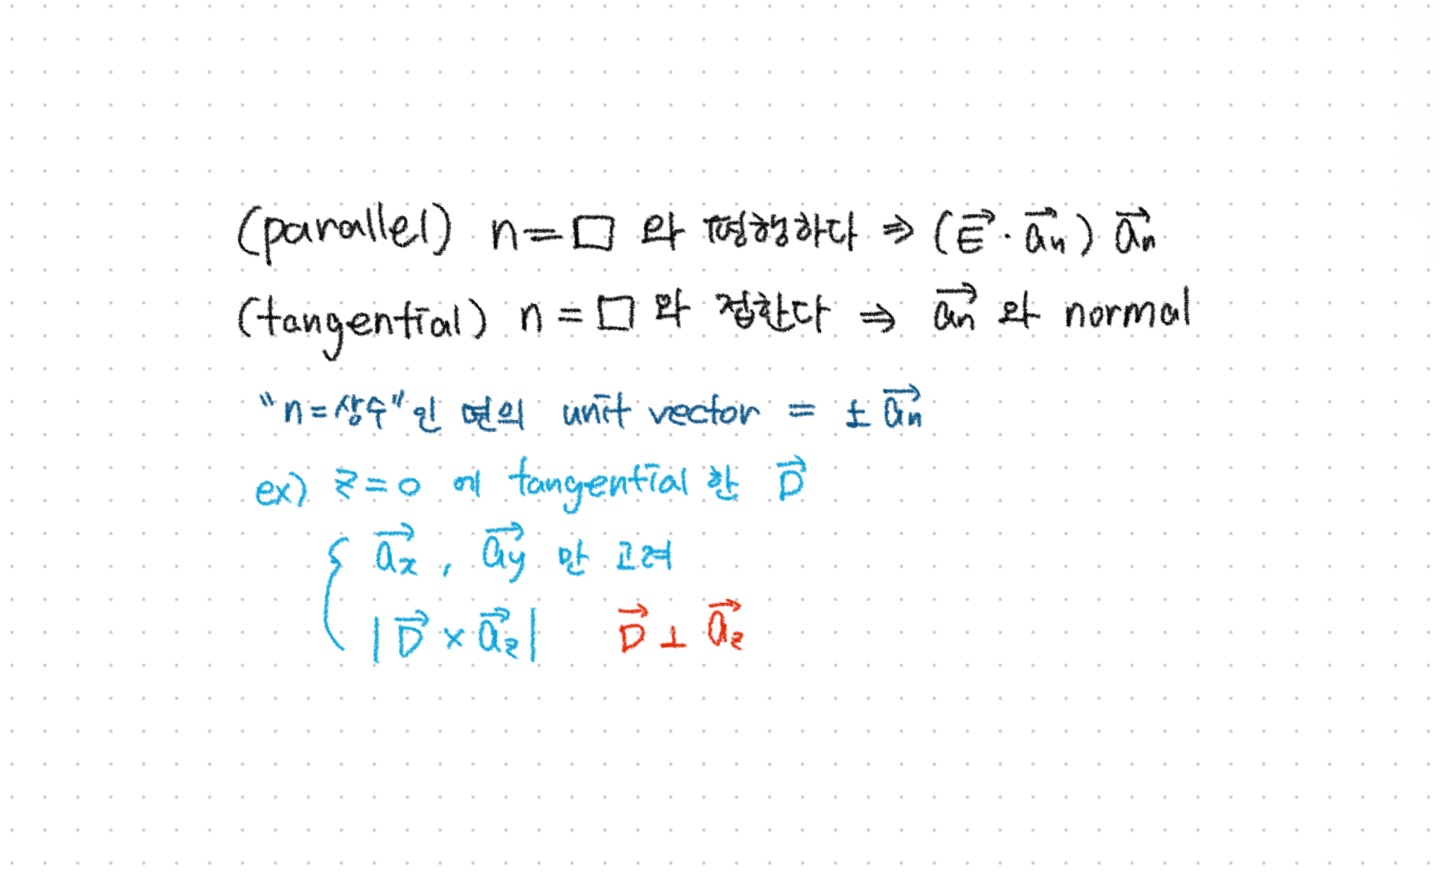 (parallel) n=□ 와 평행하다 ⇒ (E⃗·a⃗n) a⃗n
(tangential) n=□ 와 접한다 ⇒ a⃗n 와 normal
"n=상수"인 면의 unit vector = ± a⃗n
ex) z=0 에 tangential 한 D⃗
{ a⃗x, a⃗y 만 고려
|D⃗ × a⃗z| D⃗ ⊥ a⃗z